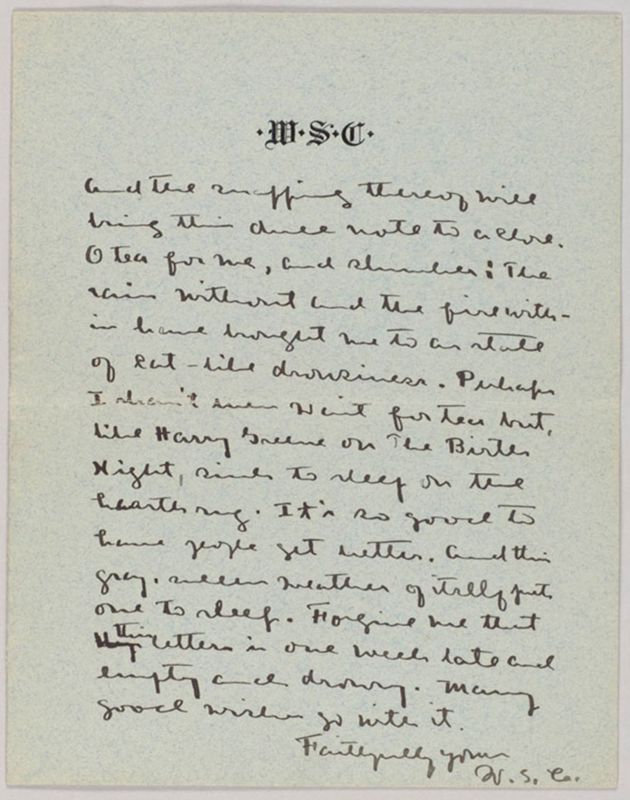 ·W·S·C·
and the snapping thereof will
bring this dull note to a close.
O tea for me, and slumber! The
rain without and the fire with-
in have brought me to a state
of cat-like drowsiness. Perhaps
I shan't even wait for tea but,
like Harry Greene on The Birth
Night, sink to sleep on the
hearth rug. It's so good to
have people get better. And this
gray, sullen weather of itself puts
one to sleep. Forgive me that
this letter is one week late and
empty and drowsy. Many
good wishes go with it.
Faithfully yours
W. S. C.